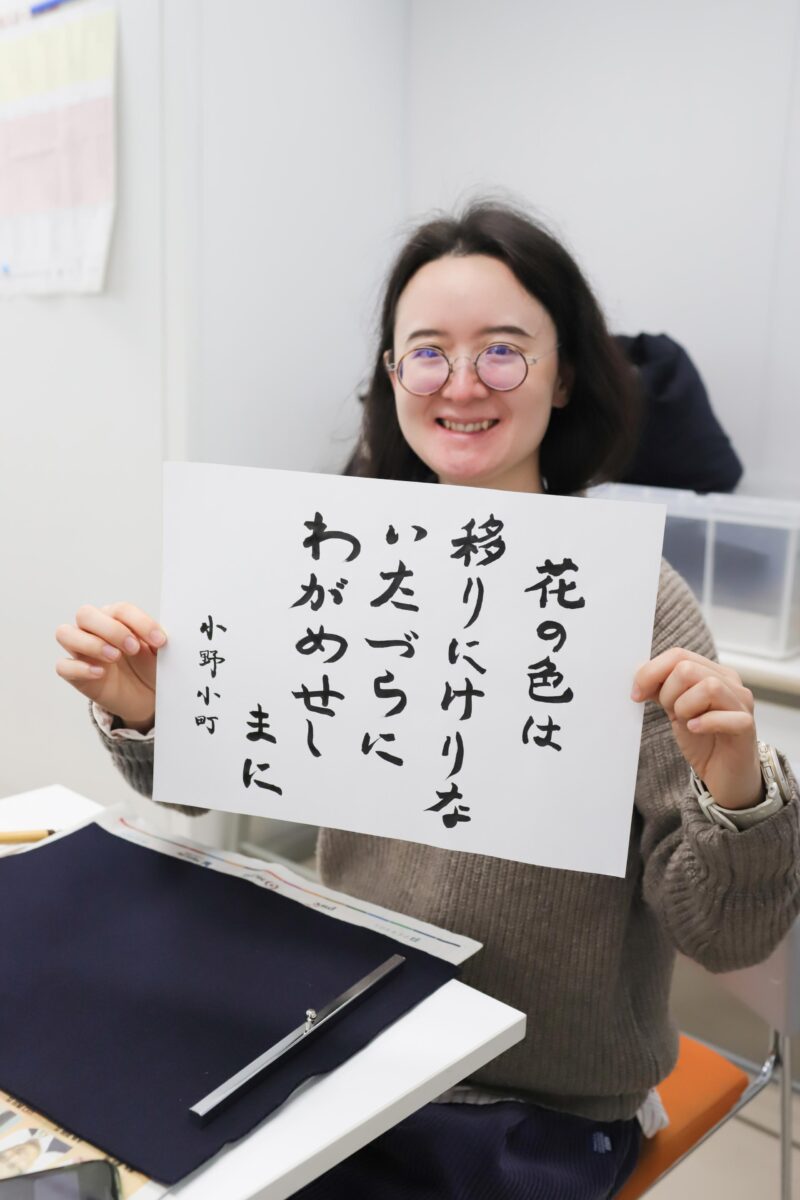 花の色は
移りにけりな
いたづらに
わがめせし
まに
小野小町